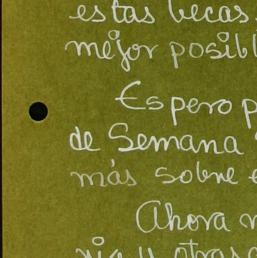 estas becas
mejor posibl
Espero p
de Semana
más sobre e
Ahora
y otras